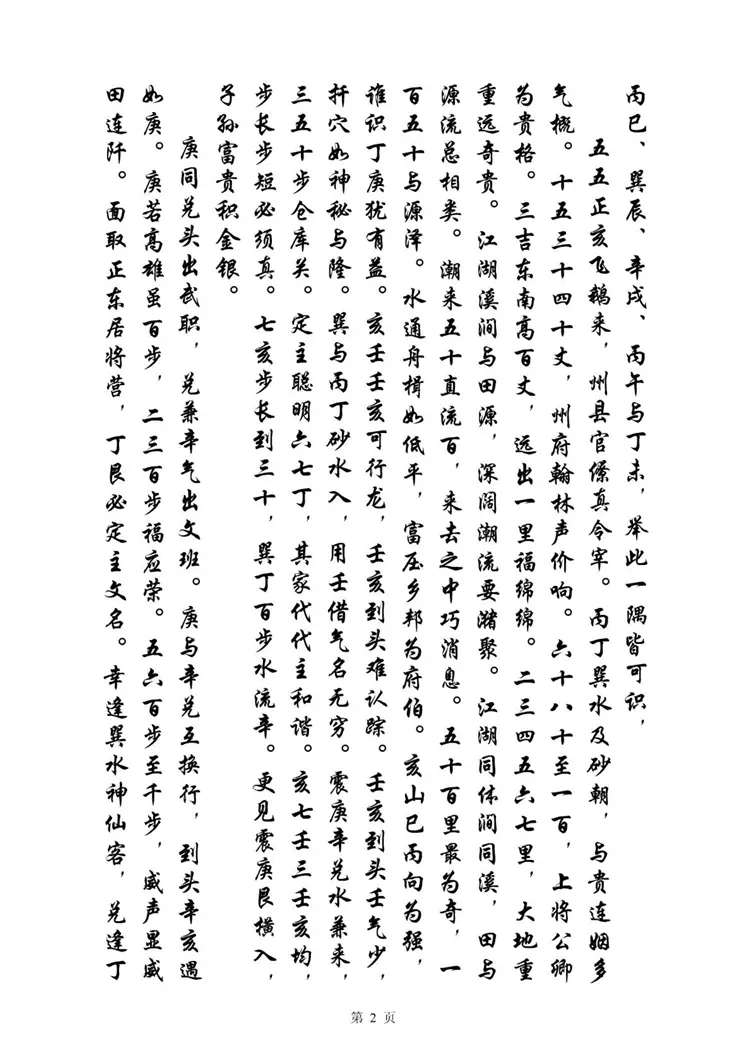 丙巳、巽辰、辛戌、丙午与丁未，举此一隅皆可识，
五五正亥飞鹅来，州县官僚真令宰。丙丁巽水及砂朝，与贵连姻多
气概。十五三十四十丈，州府翰林声价响。六十八十至一百，上将公卿
为贵格。三吉东南高百丈，远出一里福绵绵。二三四五六七里，大地重
重远奇贵。江湖溪涧与田源，深阔潮流要潴聚。江湖同体涧同溪，田与
源流总相类。潮来五十直流百，来去之中巧消息。五十百里最为奇，一
百五十与源泽。水通舟楫如低平，富压乡邦为府伯。亥山巳丙向为强，
谁识丁庚犹有益。亥壬壬亥可行龙，壬亥到头难认踪。壬亥到头壬气少，
扦穴如神秘与隆。巽与丙丁砂水入，用壬借气名无穷。震庚辛兑水兼来，
三五十步仓库关。定主聪明六七丁，其家代代主和谐。亥七壬三壬亥均，
步长步短必须真。七亥步长到三十，巽丁百步水流辛。更见震庚艮横入，
子孙富贵积金银。
庚同兑头出武职，兑兼辛气出文班。庚与辛兑互换行，到头辛亥遇
如庚。庚若高雄虽百步，二三百步福应荣。五六百步至千步，威声显威
田连阡。面取正东居将营，丁艮必定主文名。幸逢巽水神仙客，兑逢丁
第 2 页